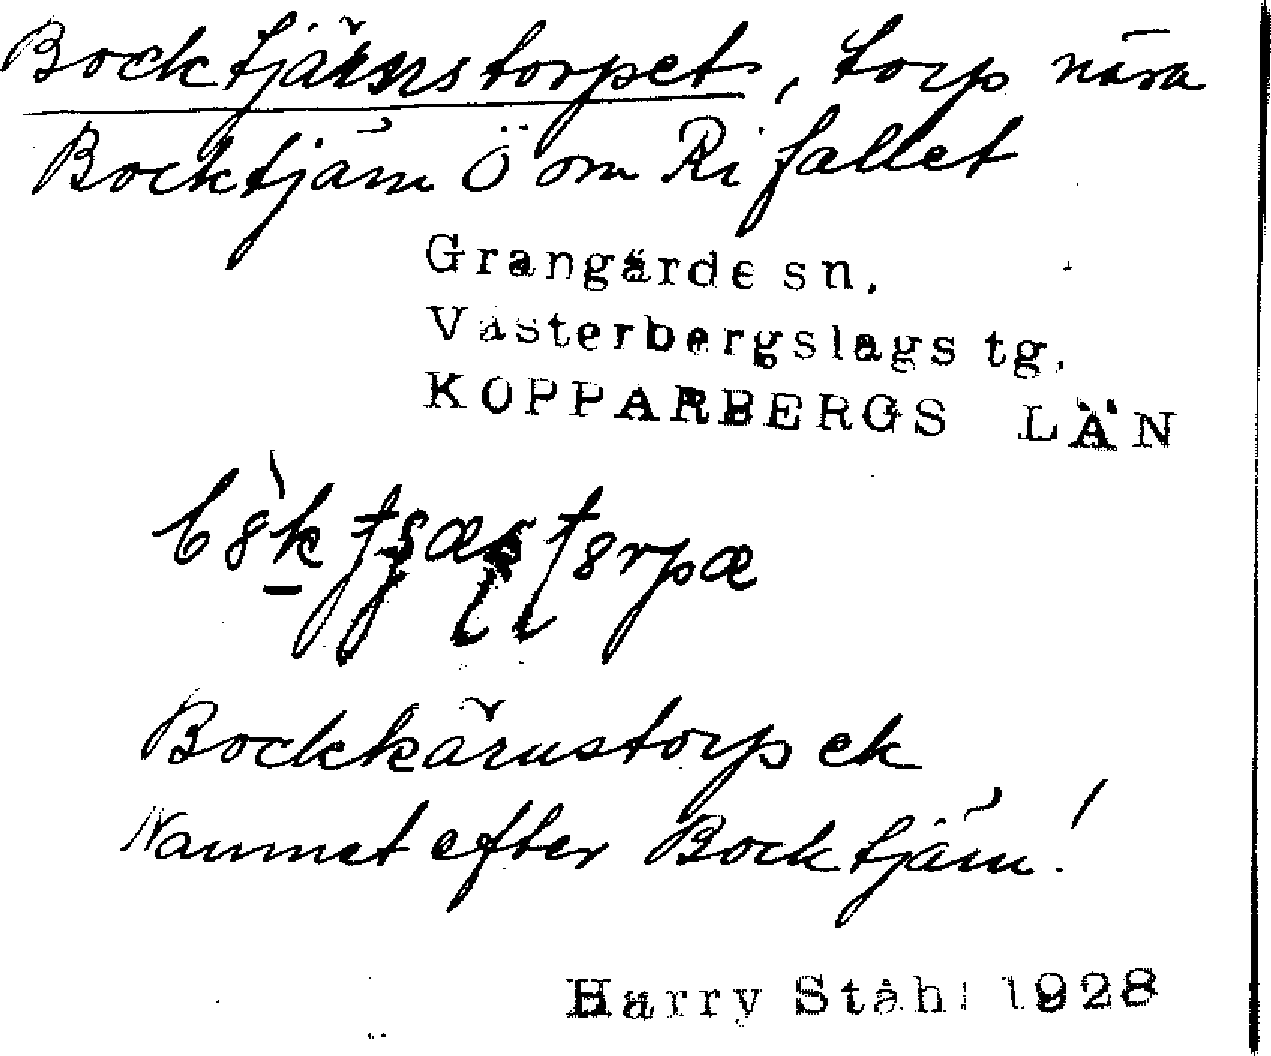 Bocktjärnstorpet, torp nära
Bocktjärn Ö om Rifallet
Grangärde sn.
Västerbergslags tg.
KOPPARBERGS LÄN
Bockkärnstorp ek
Namnet efter Bocktjärn!
Harry Ståhl 1928